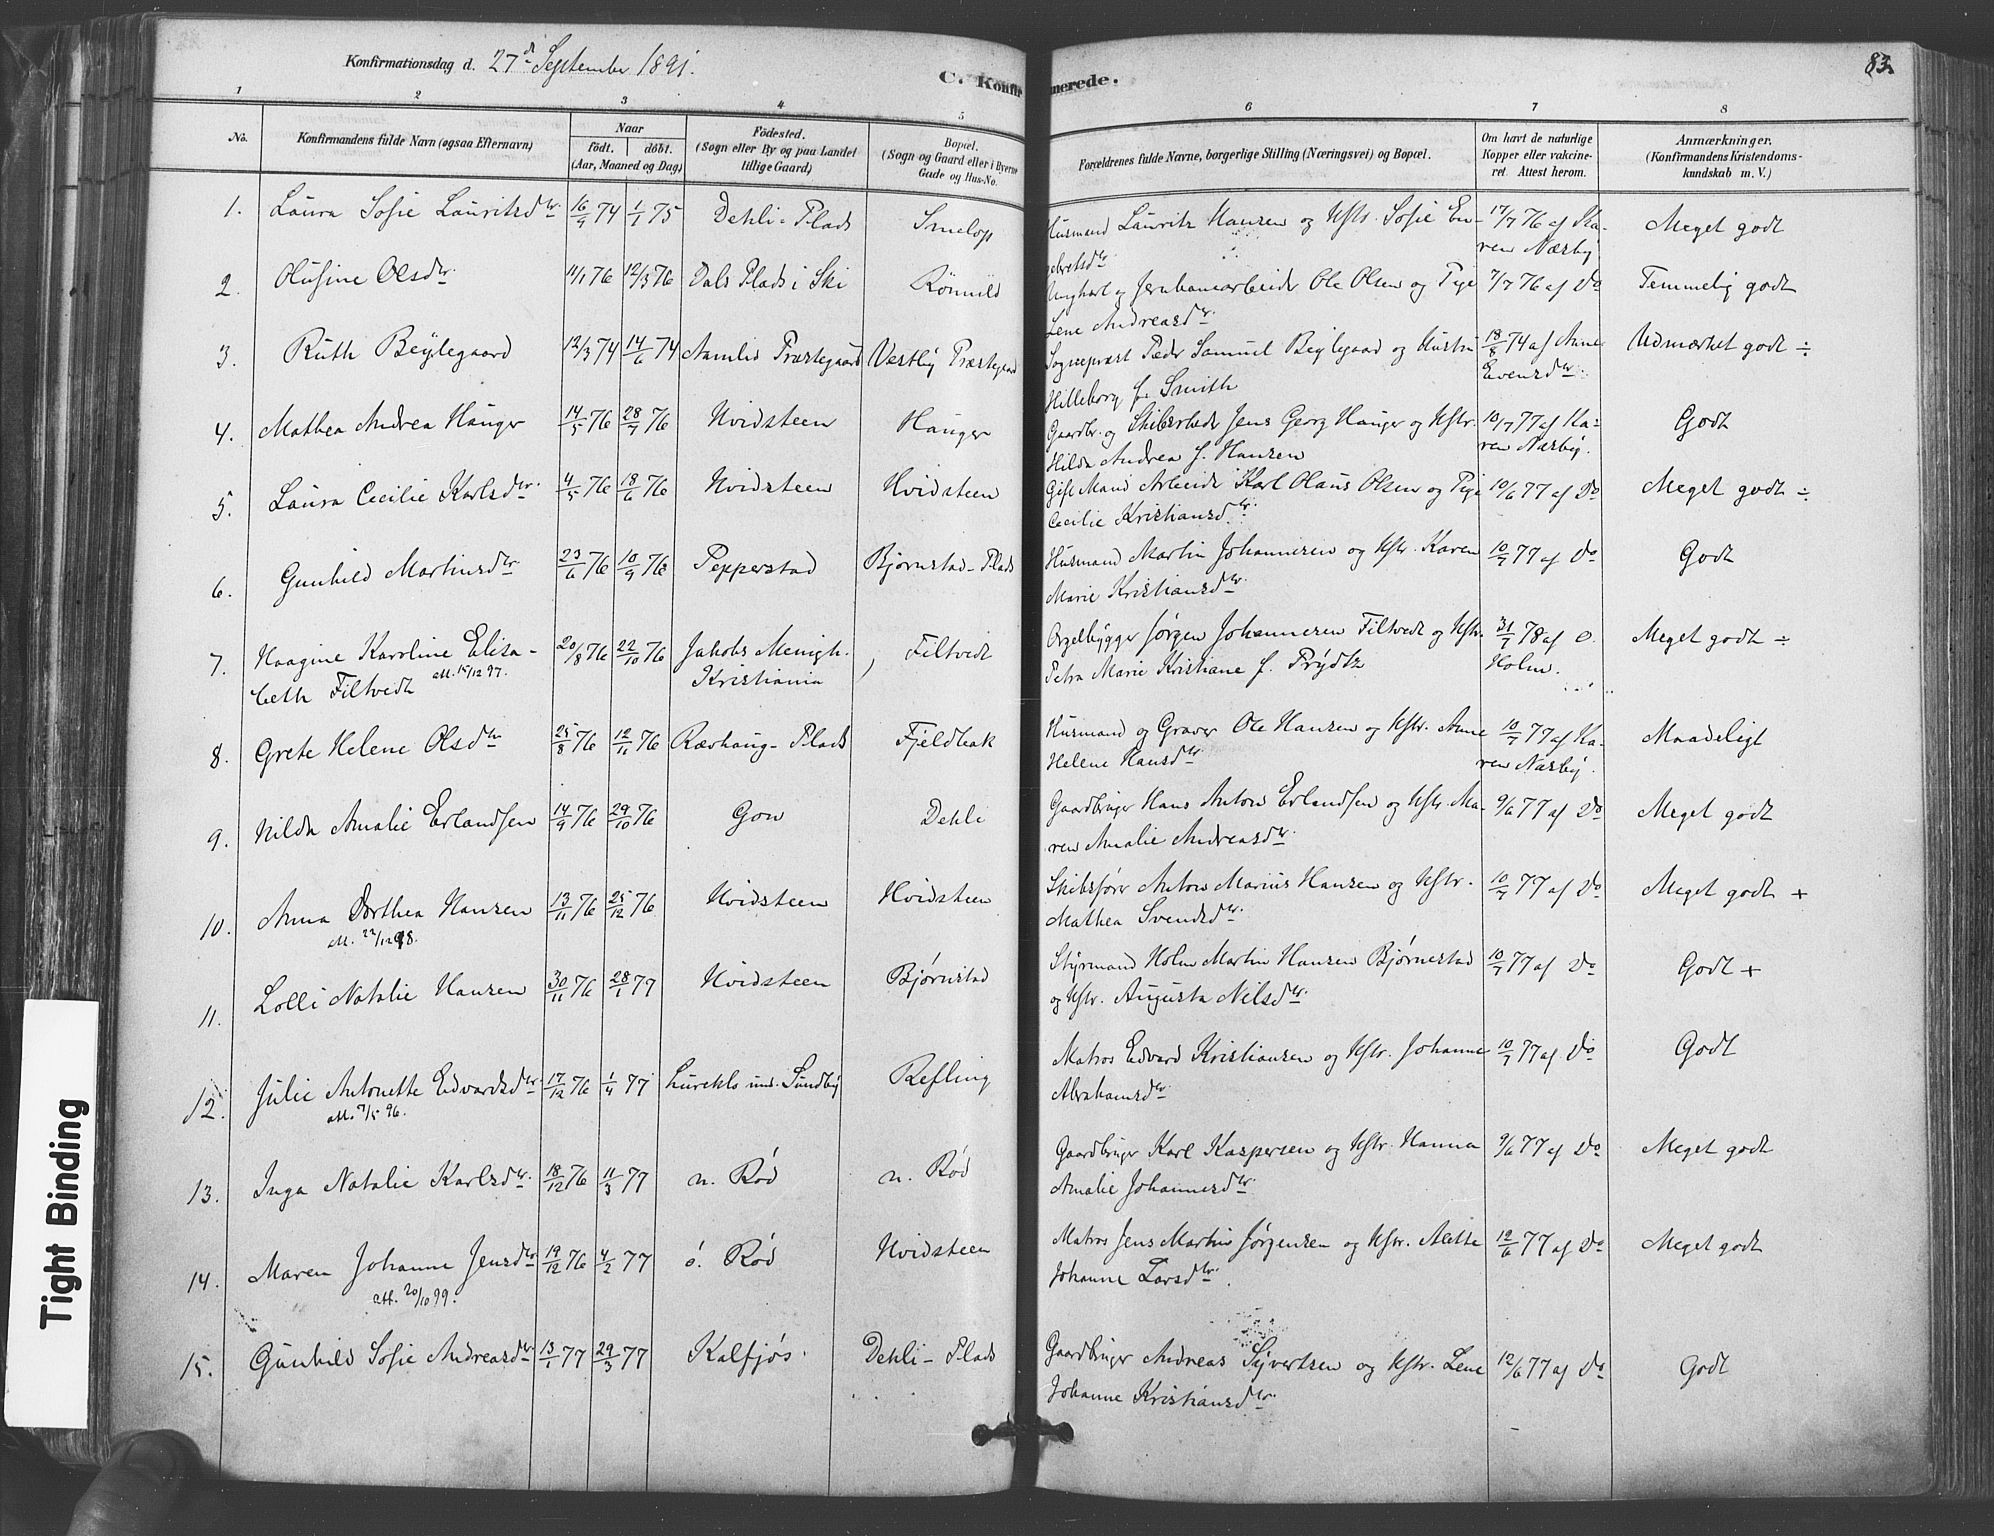 Konfirmationsdag d. 27de September 1891.
C. Konfirmerede.
83.
1 2 3 4 5 6 7 8
No.
Konfirmandens fulde Navn (ogsaa Efternavn)
Naar
født. døbt.
(Aar, Maaned og Dag)
Fødested.
(Sogn eller By og paa Landet
tillige Gaard)
Bopæl.
(Sogn og Gaard eller i Byerne
Gade og Hus-No.
Forældrenes fulde Navne, borgerlige Stilling (Næringsvei) og Bopæl.
Om havt de naturlige
Kopper eller vakcine-
ret. Attest herom.
Anmærkninger.
(Konfirmandens Kristendoms-
kundskab m. V.)
1. Laura Sofie Lauritsdtr. 16/9 74 1/1 75 Dehli-Plads Smelop Husmand Lauritz Hansen og Hstr. Sofie En- 17/7 76 af Ka- Meget godt
gebretsdtr. ren Nærby
2. Olufine Olsdtr. 11/1 76 12/3 76 Dals Plads i Ski Rönnild Ungkarl og Jernbanearbeider Ole Olsen og Pige 7/7 76 af Do Temmelig godt
Lene Andreasdtr.
3. Ruth Beylegaard 12/3 74 14/6 74 Aamlid Præstegaard Vestby Præstegaard Sogneprest Peder Samuel Beylegaard og Hustru 18/8 74 af Anne Udmærket godt ÷
Hilleborg f. Smith Evensdtr.
4. Mathea Andrea Hauger 14/5 76 28/7 76 Hvidsteen Hauger Gaardbr. og Skibsreder Jens Georg Hauger og Hstr. 10/7 77 af Ka- Godt
Hilda Andrea f. Hansen ren Nærby.
5. Laura Cecilie Karlsdtr. 4/5 76 18/6 76 Hvidsteen Hvidsteen Gift Mand Arbeider Karl Olaus Olsen og Pige 10/6 77 af Do Meget godt ÷
Cecilie Kristiansdtr.
6. Gunhild Martinsdtr 23/6 76 10/9 76 Pepperstad Bjørnstad-Plads Husmand Martin Johannesen og Hstr. Karen 10/7 77 af Do Godt
Marie Kristiansdtr.
7. Haagine Karoline Elisa- 20/8 76 22/10 76 Jakobs Menigh. Filtvedt Orgelbygger Jørgen Johannesen Filtvedt og Hstr. 31/7 78 af O. Meget godt ÷
beth Filtvedt att. 15/12 97. Kristiania Petra Marie Kristiane f. Prydtz Holm.
8. Grete Helene Olsdtr 25/8 76 12/11 76 Rævhaug-Plads Fjeldbak Husmand og Graver Ole Hansen og Hstr. Anne 10/7 77 af Ka- Maadeligt
Helene Hansdtr ren Nærby.
9. Hilda Amalie Erlandsen 14/9 76 29/10 76 Gon Dehli Gaardbruger Hans Anton Erlandsen og Hstr. Ma- 9/6 77 af Do Meget godt
ren Amalie Andreasdtr.
10. Anna Dorthea Hansen 13/11 76 25/12 76 Hvidsteen Hvidsteen Skibsfører Anton Marius Hansen og Hstr. 10/7 77 af Do Meget godt +
att. 22/12 98. Mathea Svendsdtr.
11. Lolli Natalie Hansen 30/11 76 28/1 77 Hvidsteen Bjørnstad Styrmand Holm Martin Hansen Bjørnestad 10/7 77 af Do Godt +
og Hstr. Augusta Nilsdtr.
12. Julie Antonette Edvardsdtr. 17/12 76 1/4 77 Sundby Refling Matros Edvard Kristiansen og Hstr. Johanne 10/7 77 af Do Godt
att. 7/5 96. Abrahamsdtr.
13. Inga Natalie Karlsdtr. 18/12 76 11/3 77 n. Rød n. Rød Gaardbruger Karl Kaspersen og Hstr. Hanna 9/6 77 af Do Meget godt
Amalie Johannesdtr.
14. Maren Johanne Jensdtr 19/12 76 4/2 77 ö. Rød Hvidsteen Matros Jens Martin Jørgensen og Hstr. Alette 12/6 77 af Do Meget godt
att. 20/10 99. Johanne Larsdtr.
15. Gunhild Sofie Andreasdtr 13/1 77 29/3 77 Kalfjøs. Dehli-Plads Gaardbruger Andreas Syvertsen og Hstr. Lene 12/6 77 af Do Godt
Johanne Kristiansdtr.
Tight Binding